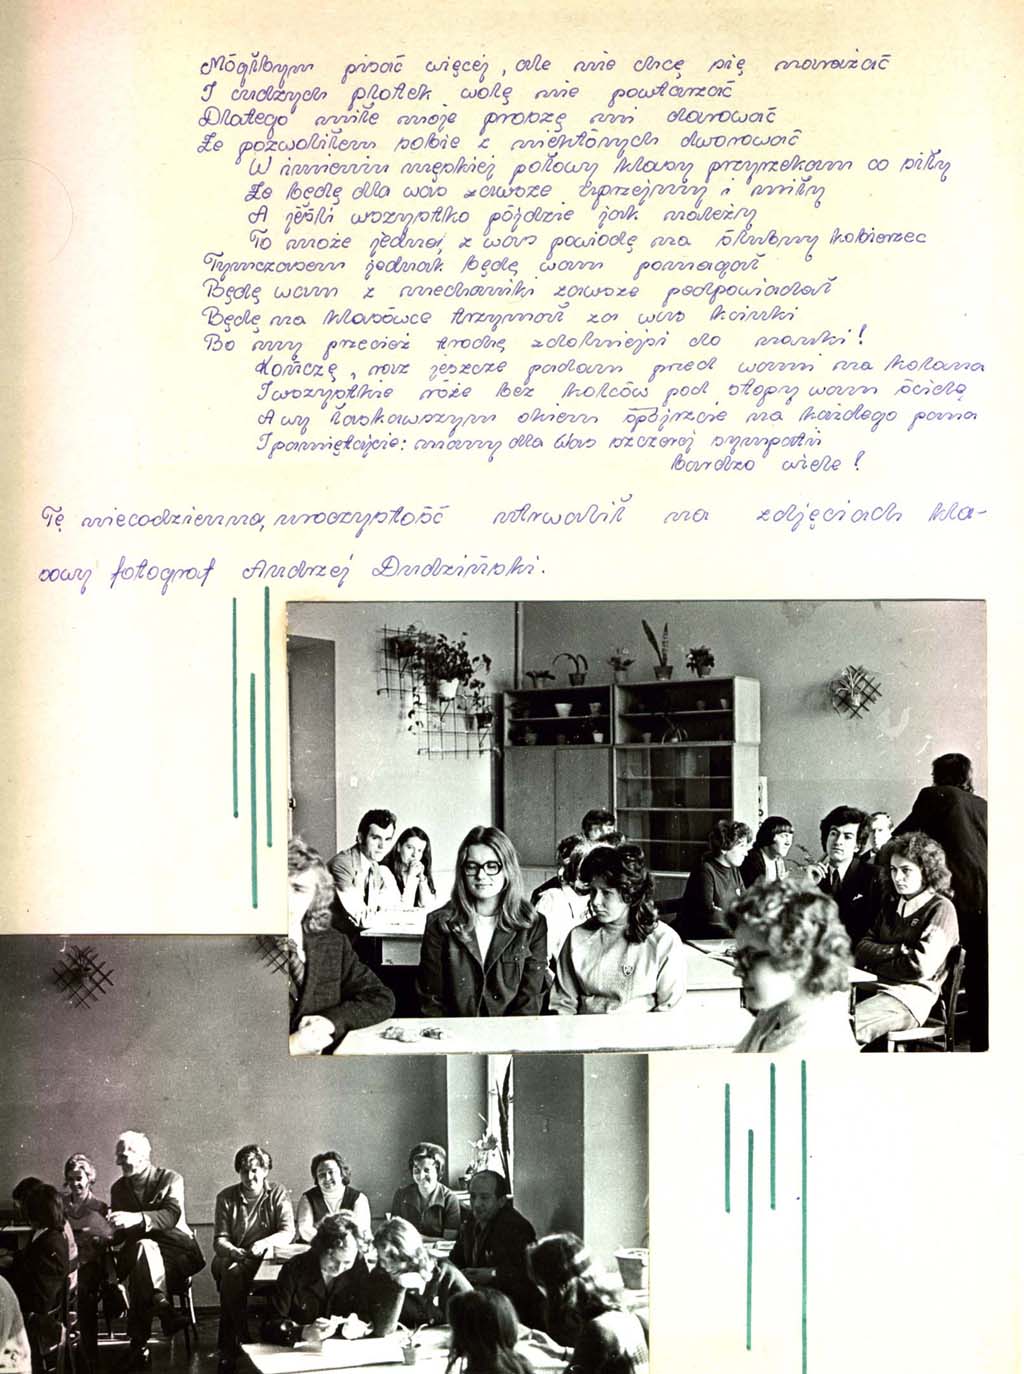 Mógłbym pisać więcej, ale nie chcę się narażać
I cudzych plotek wolę nie powtarzać
Dlatego miłe moje proszę mi darować
Że pozwoliłem sobie z niektórych dworować
W imieniu męskiej połowy klasy przyrzekam co siły
Że będę dla was zawsze uprzejmy i miły
A jeśli wszystko pójdzie jak należy
To może jedną z was powiodę na ślubny kobierzec
Tymczasem jednak będę wam pomagał
Będę wam z mechaniki zawsze podpowiadał
Będę na klasówce trzymał za was kciuki
Bo my przecież trochę zdolniejsi do nauki!
Kończę, raz jeszcze padam przed wami na kolana
I wszystkie róże bez kolców pod stopy wam ścielą
A wy łaskawszym okiem spójrzcie na każdego pana
I pamiętajcie: mamy dla Was szczerej sympatii
bardzo wiele!
Tę niecodzienną uroczystość utrwalił na zdjęciach kla-
sowy fotograf Andrzej Dudziński.